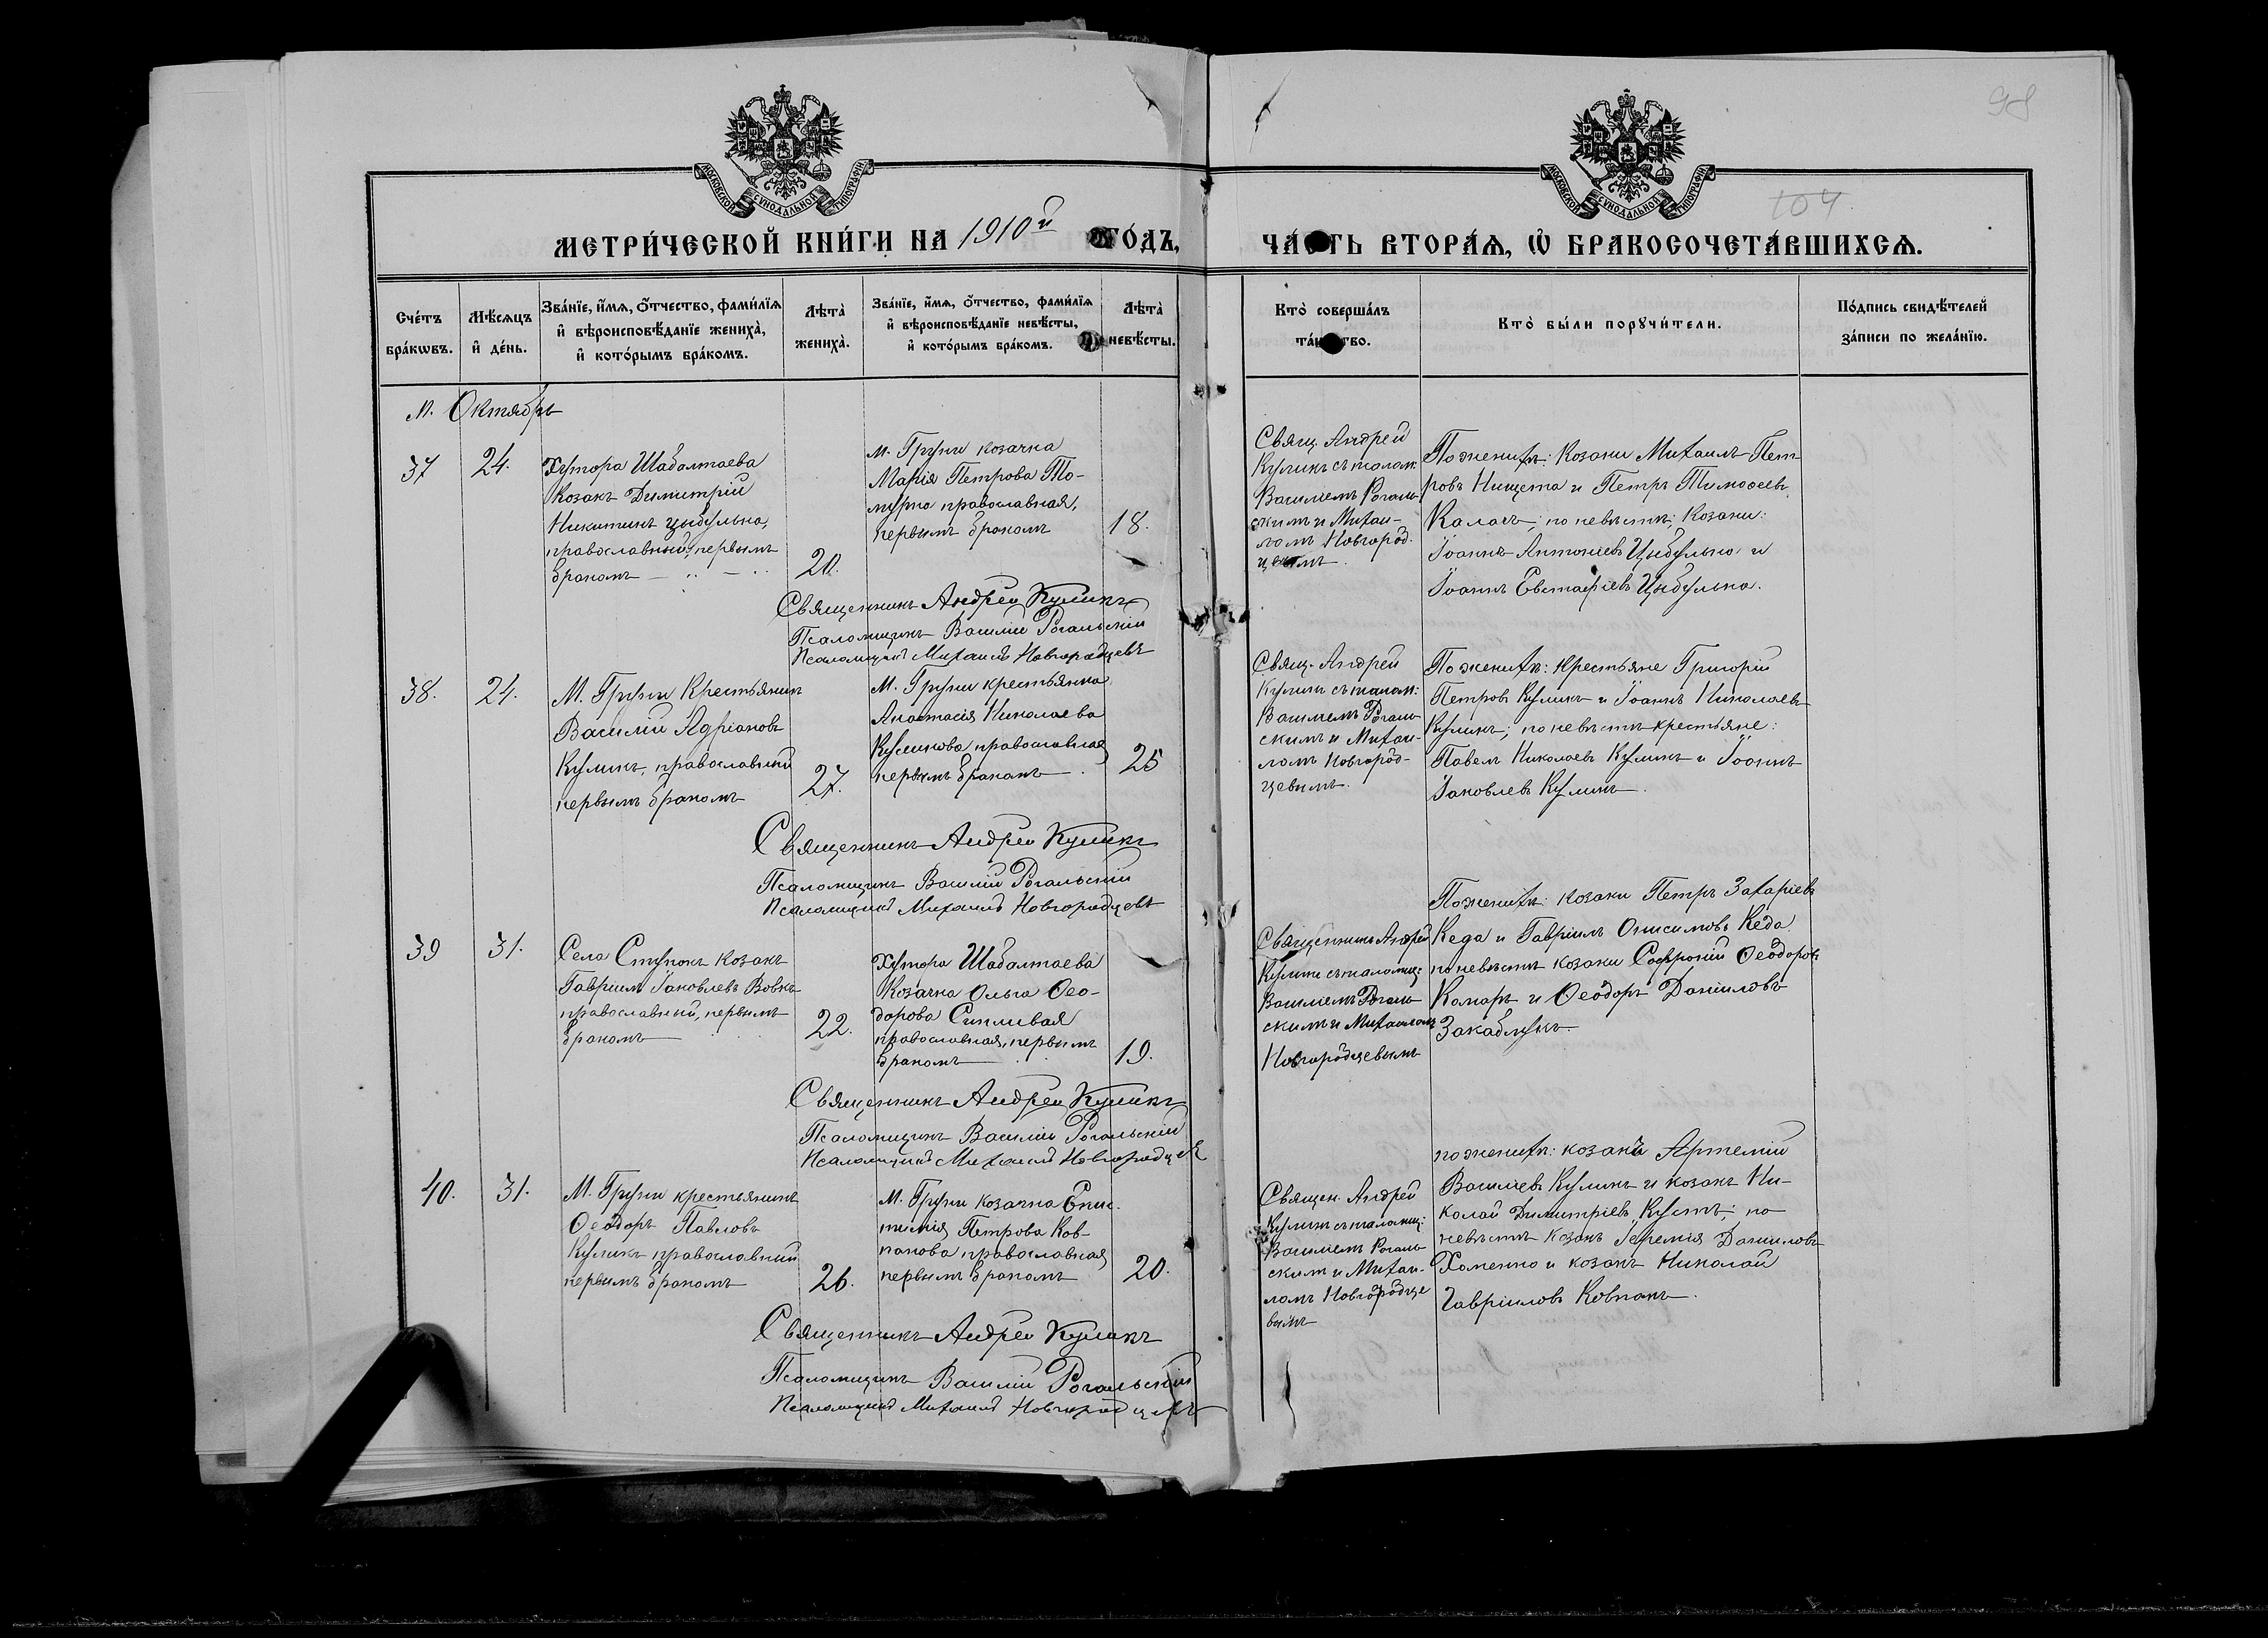 98
МОСКОВСКОЙ СѴНОДАЛЬНОЙ ТИПОГРАФІИ
МОСКОВСКОЙ СѴНОДАЛЬНОЙ ТИПОГРАФІИ
104.
МЕТРИ́ЧЕСКОЙ КНИ́ГИ НА 1910й ГО́ДЪ,
ЧА́СТЬ ВТОРА́Ѧ, Ѡ҆ БРАКОСОЧЕТА́ВШИХСѦ.
Сче́тъ
бра́кѡвъ.
Мѣ́сѧцъ
и҆ де́нь.
Зва́нїе, и҆́мѧ, ѻ҆́тчество, фами́лїѧ
и҆ вѣроисповѣ́данїе жениха̀,
и҆ кото́рымъ бра́комъ.
Лѣта̀
жениха̀.
Зва́нїе, и҆́мѧ, ѻ҆́тчество, фами́лїѧ
и҆ вѣроисповѣ́данїе невѣ́сты,
и҆ кото́рымъ бра́комъ.
Лѣта̀
невѣ́сты.
Кто̀ соверша́лъ
та́инство.
Кто̀ бы́ли порꙋчи́тели.
По́дпись свидѣ́телей
за́писи по жела́нїю.
М. Октябрь
37
24.
Хутора Шабалтаева
Козакъ Димитрій
Никитинъ Цыбулька,
православный, первымъ
бракомъ
20.
м. Груни козачка
Марія Петрова
православная,
первымъ бракомъ
18.
Свящ. Андрей
Куликъ съ псалом:
Василіемъ Рогаль-
скимъ и Михаи-
ломъ Новгород-
По женихѣ: Козаки Михаилъ Пет-
ровъ Нищета и Петръ Тимоѳеевъ
Калачъ; по невѣстѣ: Козаки:
Іоаннъ Антоніевъ Цыбулько и
Іоаннъ Евстафіевъ Цыбулька.
Священникъ Андрей Куликъ
Псаломщикъ Василій Рогальскій
Псаломщикъ Михаилъ Новгородцевъ
38.
24.
М. Груни Крестьянинъ
Василій Адріановъ
Куликъ, православный
первымъ бракомъ
27.
М. Груни крестьянка
Анастасія Николаева
Куликова православная
первымъ бракомъ
25
Свящ. Андрей
Куликъ съ псалом:
Василіемъ Рогаль-
скимъ и Михаи-
ломъ Новгород-
цевымъ.
По женихѣ: Крестьяне Григорій
Петровъ Куликъ и Іоаннъ Николаевъ
Куликъ; по невѣстѣ крестьяне:
Павелъ Николаевъ Куликъ и Іоаннъ
Іаковлевъ Куликъ.
Священникъ Андрей Куликъ
Псаломщикъ Василій Рогальскій
Псаломщикъ Михаилъ Новгородцевъ
39
31.
Села Ступокъ козакъ
Гавріилъ Іаковлевъ Вовкъ
православный, первымъ
бракомъ
22.
Хутора Шабалтаева
Козачка Ольга Ѳео-
дорова Сипливая
православная, первымъ
бракомъ
19.
Священникъ Андрей
Куликъ съ псаломщ:
Василіемъ Рогаль-
скимъ и Михаиломъ
Новгородцевымъ
По женихѣ: козаки Петръ Захаріевъ
Кеда и Гавріилъ Онисимовъ Кеда
по невѣстѣ козаки Софроній Ѳеодоровъ
и Ѳеодоръ Даніиловъ
Закаблукъ
Священникъ Андрей Куликъ
Псаломщикъ Василій Рогальскій
Псаломщикъ Михаилъ Новгородцевъ
40.
31.
М. Груни крестьянинъ
Ѳеодоръ Павловъ
Куликъ православный
первымъ бракомъ
26.
М. Груни козачка Епис-
тимія Петрова Ков-
пакова православная
первымъ бракомъ
20.
Священ. Андрей
Куликъ съ псаломщ:
Василіемъ Рогаль-
скимъ и Михаи-
ломъ Новгородце
вымъ
по женихѣ: козакъ Артемій
Василіевъ Куликъ и козакъ Ни-
колай Димитріевъ Кустъ; по
невѣстѣ козакъ Іеремія Даниловъ
Хоменко и козакъ Николай
Гавріиловъ Ковпакъ.
Священникъ Андрей Куликъ
Псаломщикъ Василій Рогальскій
Псаломщикъ Михаилъ Новгородцевъ